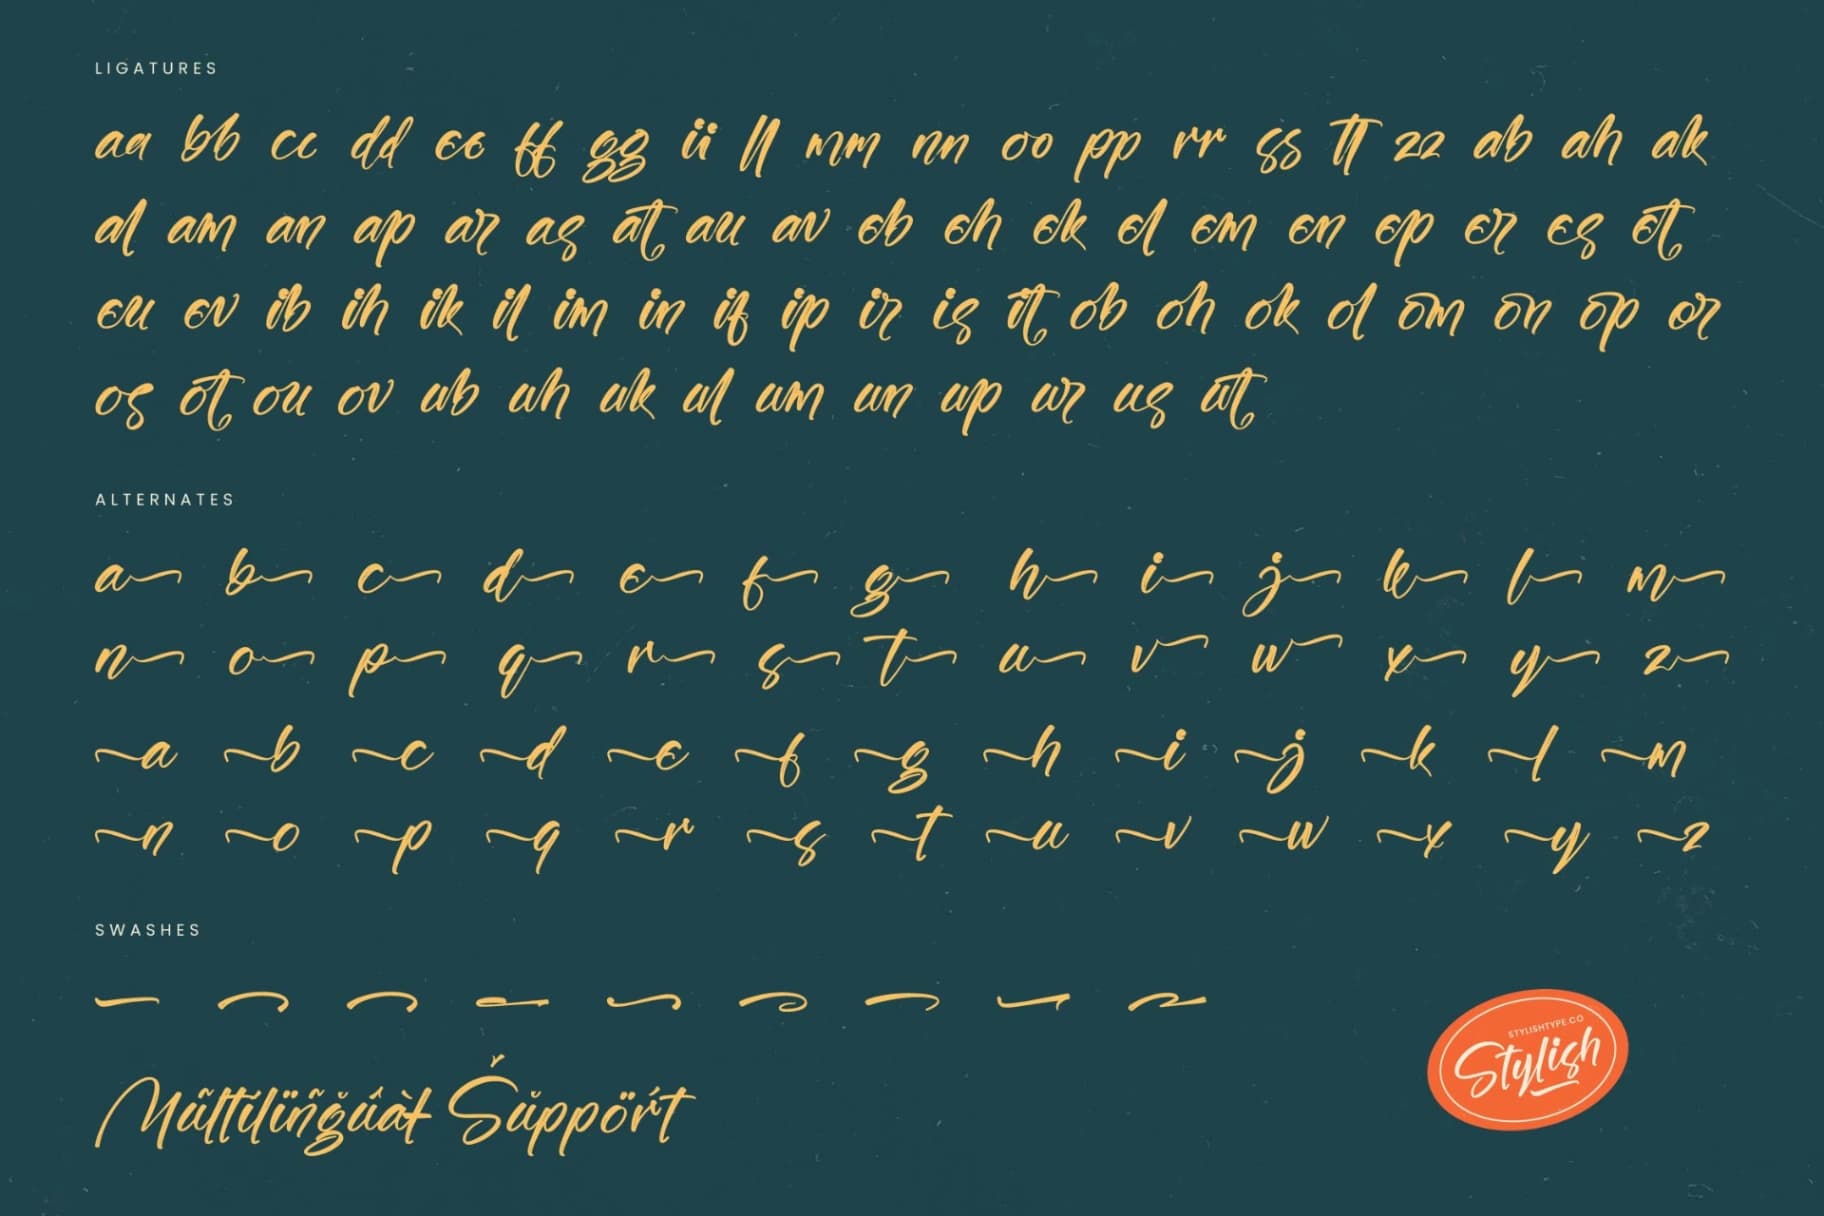 LIGATURES
aa bb cc dd ee ff gg ii ll mm nn oo pp rr ss tt zz ab ah ak
al am an ap ar as at au av eb eh ek el em en ep er es et
eu ev ib ih ik il im in if ip ir is it ob oh ok ol om on op or
os ot ou ov ub uh uk ul um un up ur us ut
ALTERNATES
a b c d e f g h i j k l m
n o p q r s t u v w x y z
a b c d e f g h i j k l m
n o p q r s t u v w x y z
SWASHES
STYLISHTYPE.CO
Stylish